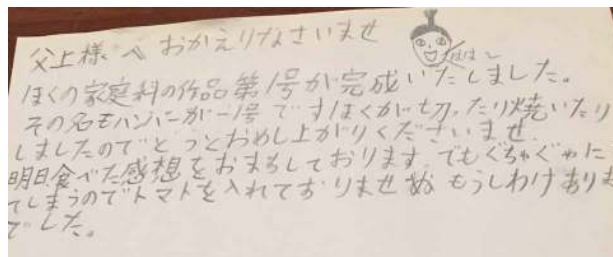 父上様へ おかえりなさいませ
ははは～
ぼくの家庭科の作品第1号が完成いたしました。
その名もハンバーガー1号ですぼくが切ったり焼いたり
しましたのでどうとおめし上がりくださいませ
明日食べた感想をおまちしております でもぐちゃぐゃに
てしまうのでトマトを入れておりませぬ もうしわけありま
でした。